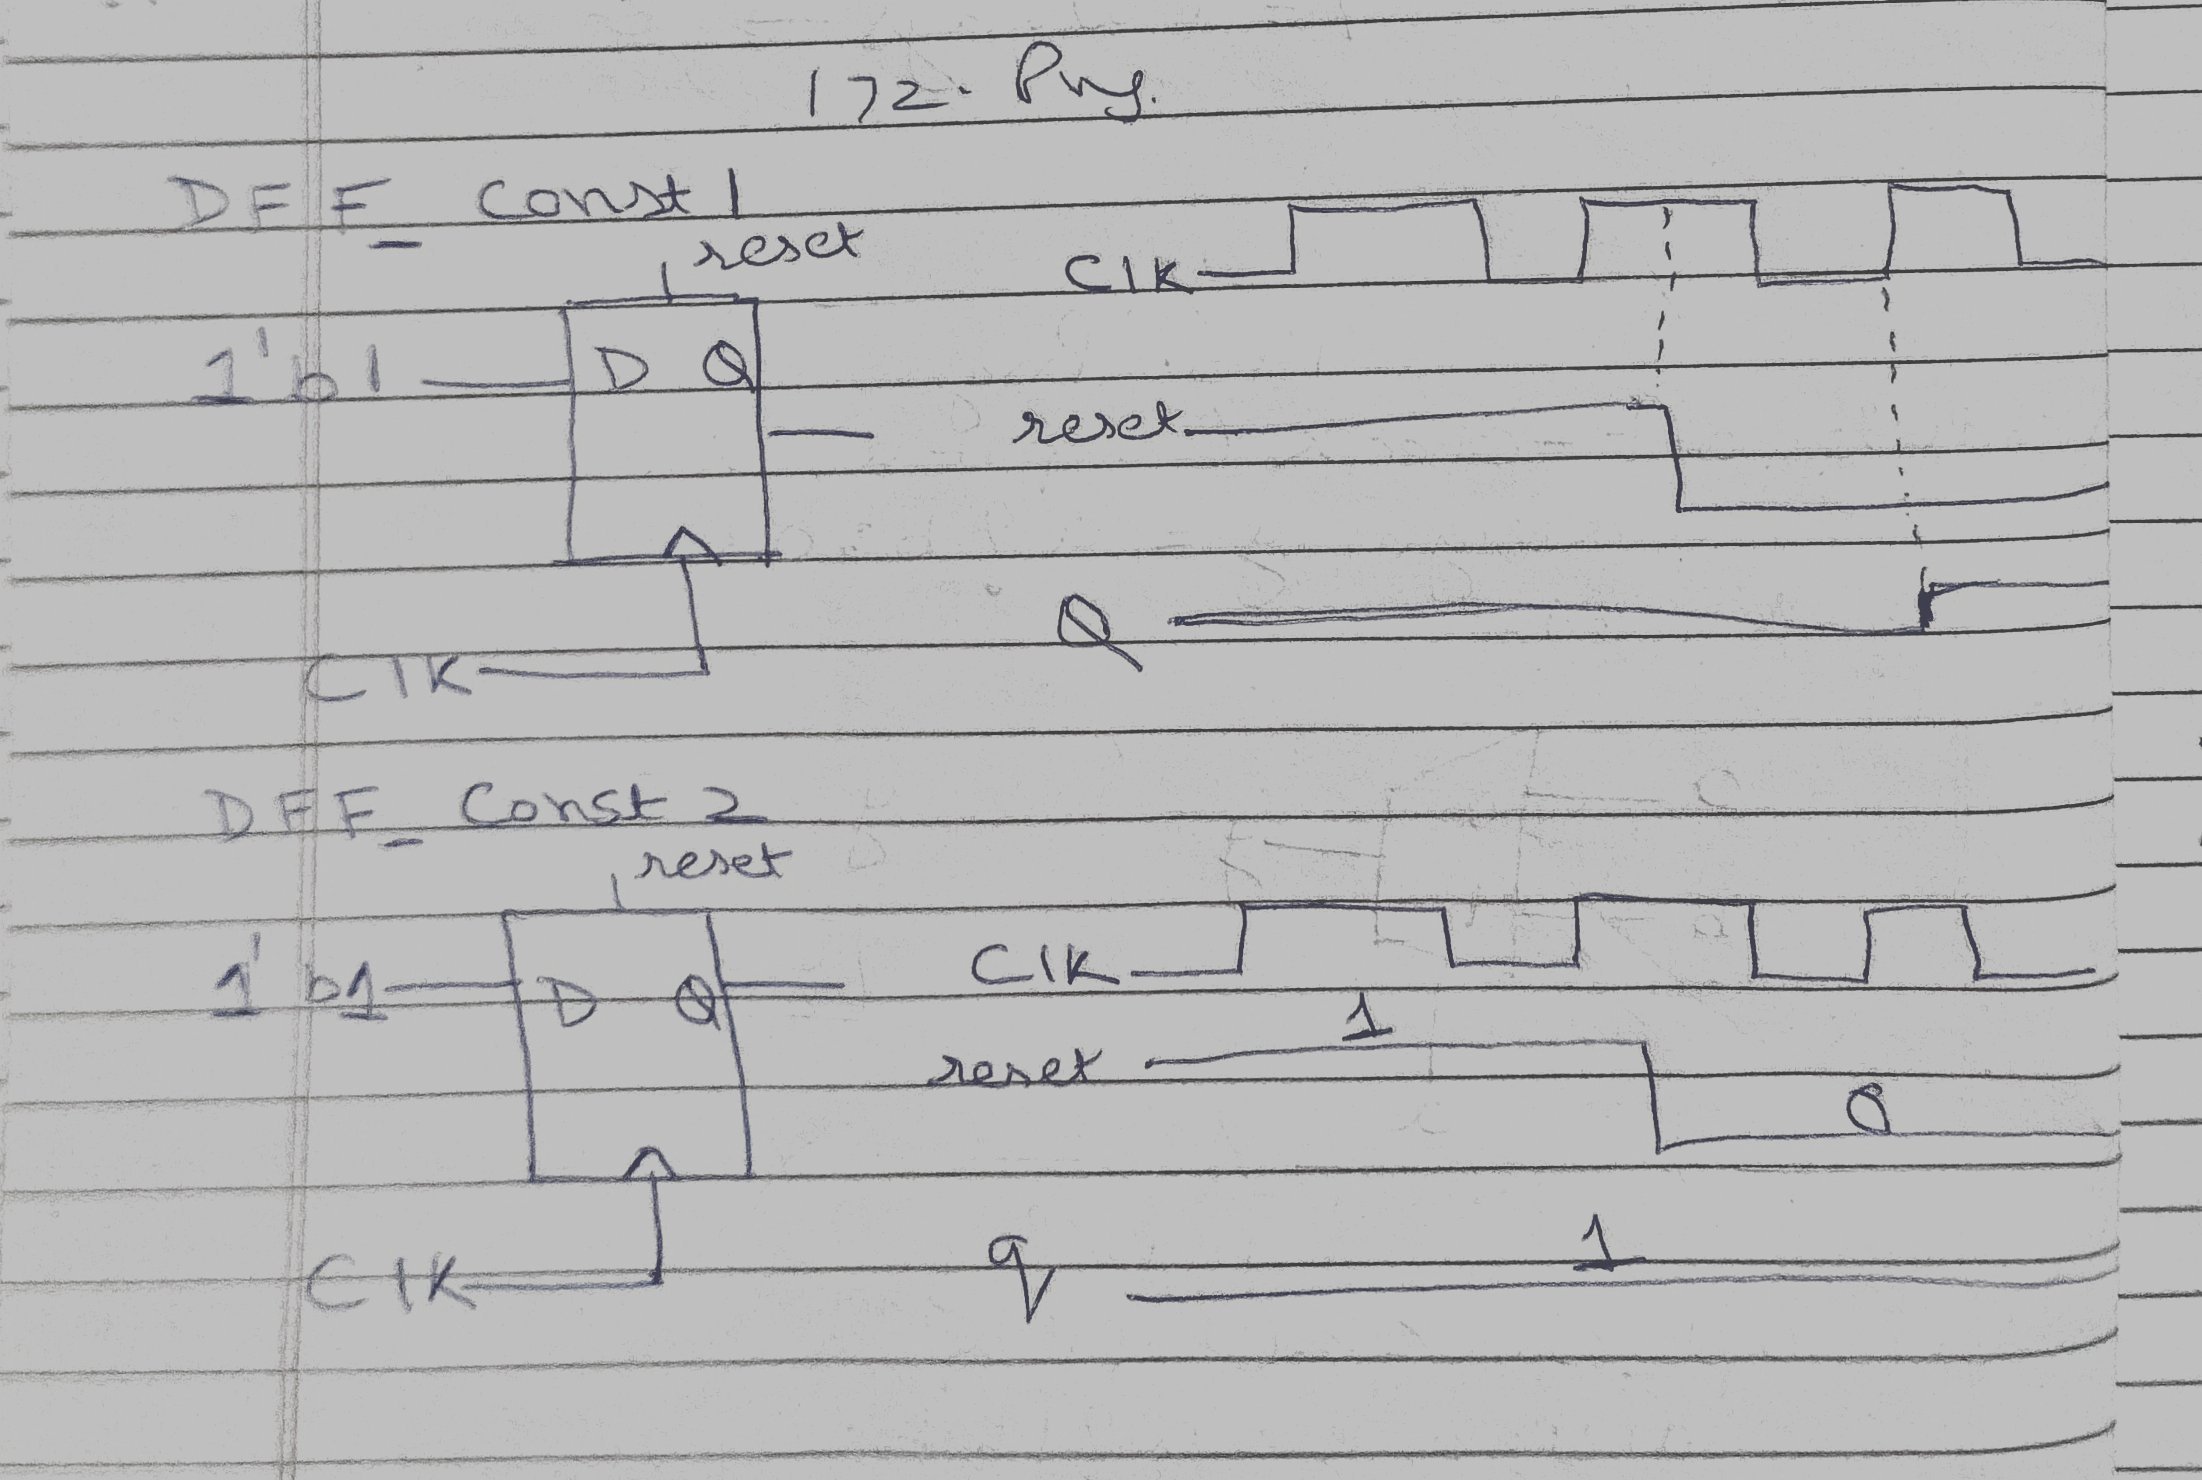 172. Png.
DFF_Const1
reset
1'b1
D Q
Clk
Clk
reset
Q
DFF_Const2
reset
1'b1
D Q
Clk
Clk
reset
1
0
q
1